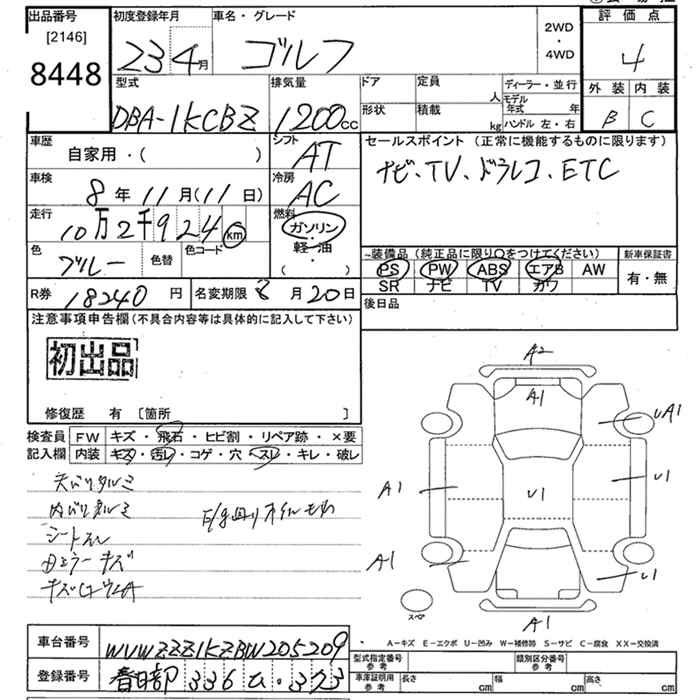 出品番号
[2146]
8448
初度登録年月
23 4月
車名・グレード
ゴルフ
2WD
・
4WD
評価点
4
外装 内装
B C
型式
DBA-1KCBZ
排気量
1200cc
ドア
形状
定員
人
積載
kg
ディーラー・並行
モデル年式 年
ハンドル 左・右
車歴
自家用・( )
シフト
AT
セールスポイント (正常に機能するものに限ります)
ナビ、TV、ドラレコ、ETC
車検
8年 11月 (11日)
冷房
AC
走行
10万2千924km
燃料
ガソリン・
軽・油
・
( )
色
ブルー
色替
色コード
~装備品 (純正品に限り○をつけてください)
新車保証書
PS PW ABS エアB AW
SR ナビ TV カワ
有・無
R券 18240円
名変期限 8月20日
後日品
注意事項申告欄(不具合内容等は具体的に記入して下さい)
初出品
修復歴 有 [箇所 ]
検査員
記入欄
FW キズ・飛石・ヒビ割・リペア跡・×要
内装 キズ・汚レ・コゲ・穴・スレ・キレ・破レ
天バリタルミ
内バリタルミ
シートスレ
キズ
A2
A1
UA1
A1
U1
U1
A1
U1
A1
スペア
・ A-キズ E-エクボ U-凹み W-補修跡 S-サビ C-腐食 XX-交換済
車台番号 WVWZZZ1KZBW205209
登録番号 春日部 336 ム・323
型式指定番号
参考
類別区分番号
参考
車庫証明用
参考
長さ cm
幅 cm
高さ cm